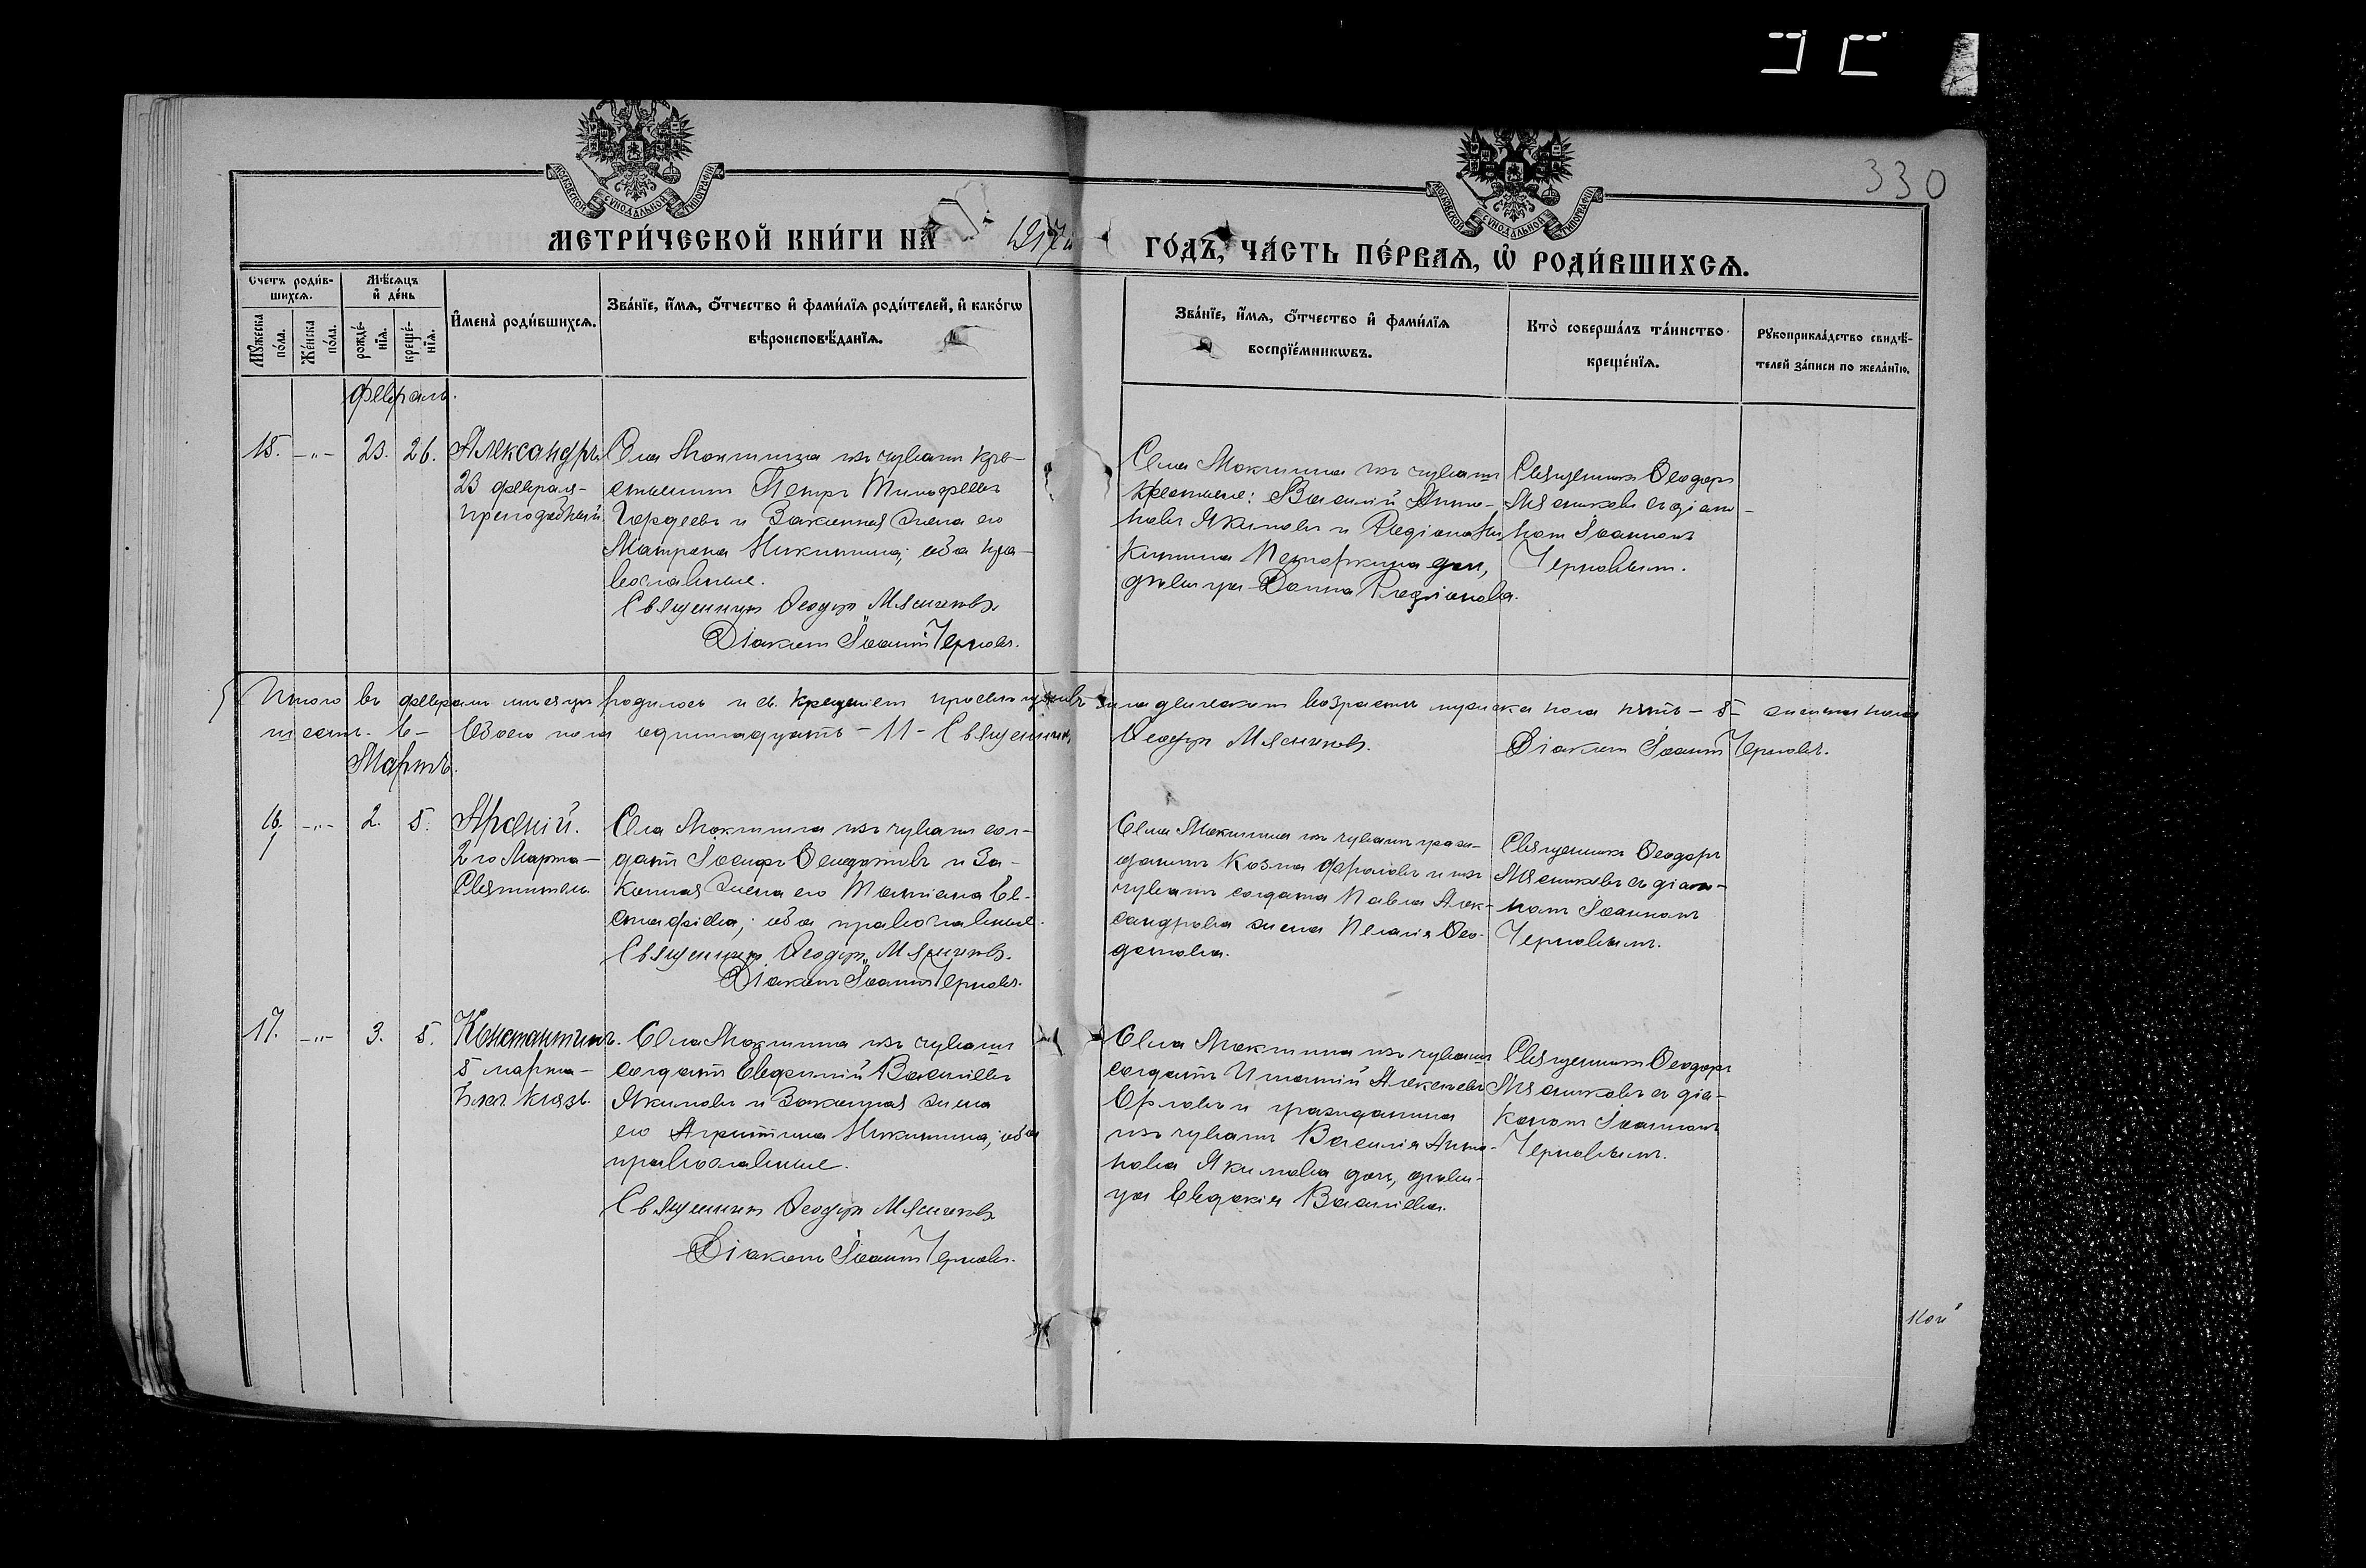 330
МЕТРИ́ЧЕСКОЙ КНИ́ГИ НА 1917й ГО́ДЪ, ЧА́СТЬ ПЕ́РВАЯ, Ѡ҆ РОДИ́ВШИХСЯ.
Счетъ роди́в-
шихся.
Мужеска
по́ла.
Же́нска
по́ла.
Мѣ́сяцъ
и҆ де́нь
рожде́-
нїя.
креще́-
нїя.
И҆мена̀ роди́вшихся.
Зва́нїе, и҆́мя, о҆́тчество и҆ фами́лїя роди́телей, и҆ како́гѡ
вѣроисповѣ́данїя.
Зва́нїе, и҆́мя, о҆́тчество и҆ фами́лїя
воспрїе́мникѡвъ.
Кто̀ соверша́лъ та́инство
креще́нїя.
Рꙋкоприкла́дство свидѣ́-
телей за́писи по жела́нїю.
Февраль.
15. -„- 23. 26. Александръ
23 февраля-
преподобный
Села Мокшина изъ чувашъ кре-
стьянинъ Петръ Тимофеевъ
Гордеевъ и законная жена его
Матрона Никитина; оба пра-
вославные.
Священникъ Ѳеодоръ Мясниковъ.
Діаконъ Іоаннъ Черновъ.
Села Мокшина изъ чувашъ
крестьяне: Василий Анто-
новъ Якимовъ и Родіона Ни-
китина дочь,
дѣвица Домна Родіонова.
Священникъ Ѳеодоръ
Мясниковъ съ діако-
номъ Іоанномъ
Черновымъ.
Итого въ феврале месяце родилось и св. крещеніемъ просвѣщено въ младенческомъ возрасте мужска пола пять - 5 - женска пола
шесть. 6- Обоего пола одиннадцать - 11 - Священникъ Ѳеодоръ Мясниковъ. Діаконъ Іоаннъ Черновъ.
Мартъ.
16. -„- 2. 5. Арсеній.
2го Марта-
Святитель
Села Мокшина изъ чувашъ сол-
датъ Іосифъ и за-
конная жена его Татіана Ев-
стафіева; оба православные.
Священникъ Ѳеодоръ Мясниковъ.
Діаконъ Іоаннъ Черновъ.
Села Мокшина изъ чувашъ граж-
данинъ Козма Фроловъ и изъ
чувашъ солдата Павла Алек-
сандрова жена Пелагія Ѳео-
дотова.
Священникъ Ѳеодоръ
Мясниковъ съ діако-
номъ Іоанномъ
Черновымъ.
17. -„- 3. 5. Константинъ.
5 марта-
Благ. князь.
Села Мокшина изъ чувашъ
солдатъ Евфимій Васильевъ
Якимовъ и законная жена
его Агриппина Никитина; оба
православные.
Священникъ Ѳеодоръ Мясниковъ
Діаконъ Іоаннъ Черновъ.
Села Мокшина изъ чувашъ
солдатъ Игнатій Алексѣевъ
и гражданина
изъ чувашъ Василія Анто-
нова Якимова дочь, дѣви-
ца Евдокія Васильева.
Священникъ Ѳеодоръ
Мясниковъ съ діа-
кономъ Іоанномъ
Черновымъ.